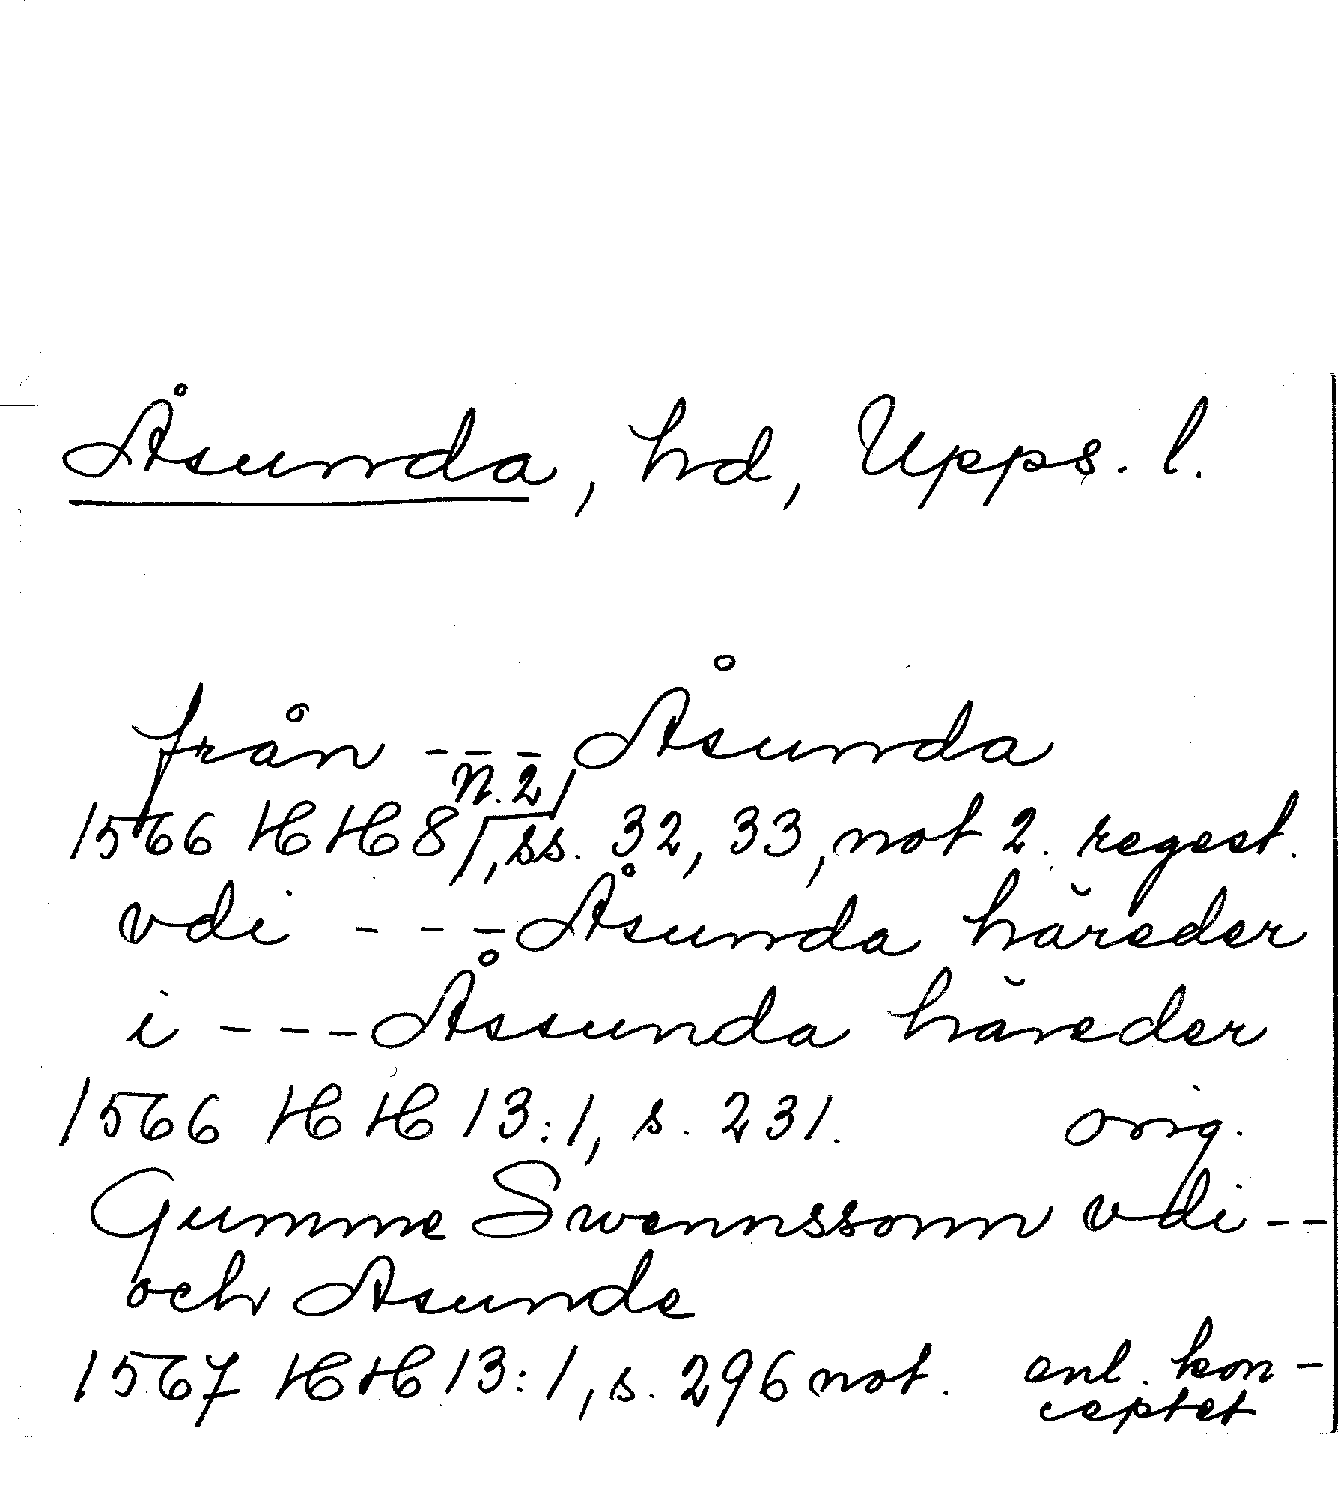 Åsunda, hd, Upps. l.
från - - - Åsunda
n. 2
1566 HH 8, ss. 32, 33, not 2. regest.
vdi - - - Åsunda häreder
i - - - Åssunda häreder
1566 HH 13:1, s. 231. orig.
Gumme Swennssonn vdi - -
och Asunde
1567 HH 13:1, s. 296 not. enl. kon-
ceptet